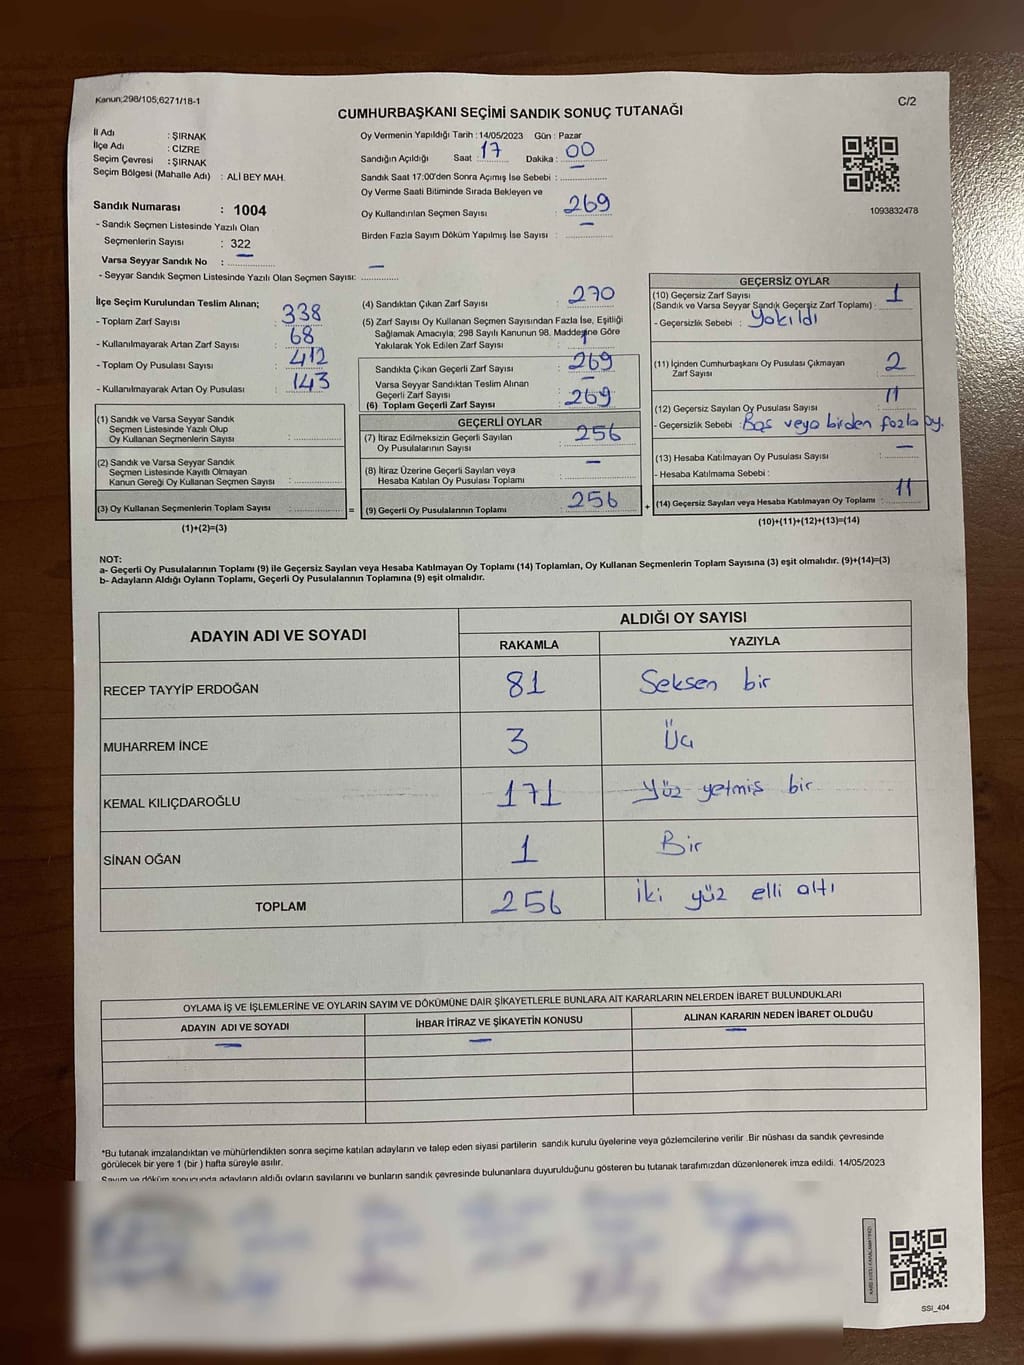 Kanun;298/105,6271/18-1
C/2
CUMHURBAŞKANI SEÇİMİ SANDIK SONUÇ TUTANAĞI
İl Adı : ŞIRNAK
İlçe Adı : CİZRE
Seçim Çevresi : ŞIRNAK
Seçim Bölgesi (Mahalle Adı) : ALİ BEY MAH.
Sandık Numarası : 1004
- Sandık Seçmen Listesinde Yazılı Olan
Seçmenlerin Sayısı : 322
Varsa Seyyar Sandık No : —
- Seyyar Sandık Seçmen Listesinde Yazılı Olan Seçmen Sayısı: —
Oy Vermenin Yapıldığı Tarih : 14/05/2023 Gün : Pazar
Sandığın Açıldığı Saat : 17 Dakika : 00
Sandık Saat 17:00'den Sonra Açımış İse Sebebi : —
Oy Verme Saati Bitiminde Sırada Bekleyen ve
Oy Kullandırılan Seçmen Sayısı : 269
Birden Fazla Sayım Döküm Yapılmış İse Sayısı : —
1093832478
İlçe Seçim Kurulundan Teslim Alınan;
- Toplam Zarf Sayısı : 338
- Kullanılmayarak Artan Zarf Sayısı : 68
- Toplam Oy Pusulası Sayısı : 412
- Kullanılmayarak Artan Oy Pusulası : 143
(1) Sandık ve Varsa Seyyar Sandık
Seçmen Listesinde Yazılı Olup
Oy Kullanan Seçmenlerin Sayısı :
(2) Sandık ve Varsa Seyyar Sandık
Seçmen Listesinde Kayıtlı Olmayan
Kanun Gereği Oy Kullanan Seçmen Sayısı :
(3) Oy Kullanan Seçmenlerin Toplam Sayısı : =
(1)+(2)=(3)
(4) Sandıktan Çıkan Zarf Sayısı : 270
(5) Zarf Sayısı Oy Kullanan Seçmen Sayısından Fazla İse, Eşitliği
Sağlamak Amacıyla, 298 Sayılı Kanunun 98. Maddesine Göre
Yakılarak Yok Edilen Zarf Sayısı : 1
Sandıkta Çıkan Geçerli Zarf Sayısı : 269
Varsa Seyyar Sandıktan Teslim Alınan
Geçerli Zarf Sayısı : —
(6) Toplam Geçerli Zarf Sayısı : 269
GEÇERLİ OYLAR
(7) İtiraz Edilmeksizin Geçerli Sayılan
Oy Pusulalarının Sayısı : 256
(8) İtiraz Üzerine Geçerli Sayılan veya
Hesaba Katılan Oy Pusulası Toplamı : —
(9) Geçerli Oy Pusulalarının Toplamı : 256 +
GEÇERSİZ OYLAR
(10) Geçersiz Zarf Sayısı
(Sandık ve Varsa Seyyar Sandık Geçersiz Zarf Toplamı) : 1
- Geçersizlik Sebebi : Yakıldı
(11) İçinden Cumhurbaşkanı Oy Pusulası Çıkmayan
Zarf Sayısı : 2
(12) Geçersiz Sayılan Oy Pusulası Sayısı : 11
- Geçersizlik Sebebi : Boş veya birden fazla oy.
(13) Hesaba Katılmayan Oy Pusulası Sayısı : —
- Hesaba Katılmama Sebebi :
(14) Geçersiz Sayılan veya Hesaba Katılmayan Oy Toplamı : 11
(10)+(11)+(12)+(13)=(14)
NOT:
a- Geçerli Oy Pusulalarının Toplamı (9) ile Geçersiz Sayılan veya Hesaba Katılmayan Oy Toplamı (14) Toplamları, Oy Kullanan Seçmenlerin Toplam Sayısına (3) eşit olmalıdır. (9)+(14)=(3)
b- Adayların Aldığı Oyların Toplamı, Geçerli Oy Pusulalarının Toplamına (9) eşit olmalıdır.
ADAYIN ADI VE SOYADI ALDIĞI OY SAYISI
RAKAMLA YAZIYLA
RECEP TAYYİP ERDOĞAN 81 Seksen bir
MUHARREM İNCE 3 Üç
KEMAL KILIÇDAROĞLU 171 Yüz yetmiş bir
SİNAN OĞAN 1 Bir
TOPLAM 256 İki yüz elli altı
OYLAMA İŞ VE İŞLEMLERİNE VE OYLARIN SAYIM VE DÖKÜMÜNE DAİR ŞİKAYETLERLE BUNLARA AİT KARARLARIN NELERDEN İBARET BULUNDUKLARI
ADAYIN ADI VE SOYADI İHBAR İTİRAZ VE ŞİKAYETİN KONUSU ALINAN KARARIN NEDEN İBARET OLDUĞU
— — —
*Bu tutanak imzalandıktan ve mühürlendikten sonra seçime katılan adayların ve talep eden siyasi partilerin sandık kurulu üyelerine veya gözlemcilerine verilir .Bir nüshası da sandık çevresinde
görülecek bir yere 1 (bir ) hafta süreyle asılır.
Sayım ve döküm sonucunda adayların aldığı oyların sayılarını ve bunların sandık çevresinde bulunanlara duyurulduğunu gösteren bu tutanak tarafımızdan düzenlenerek imza edildi. 14/05/2023
SSI_404